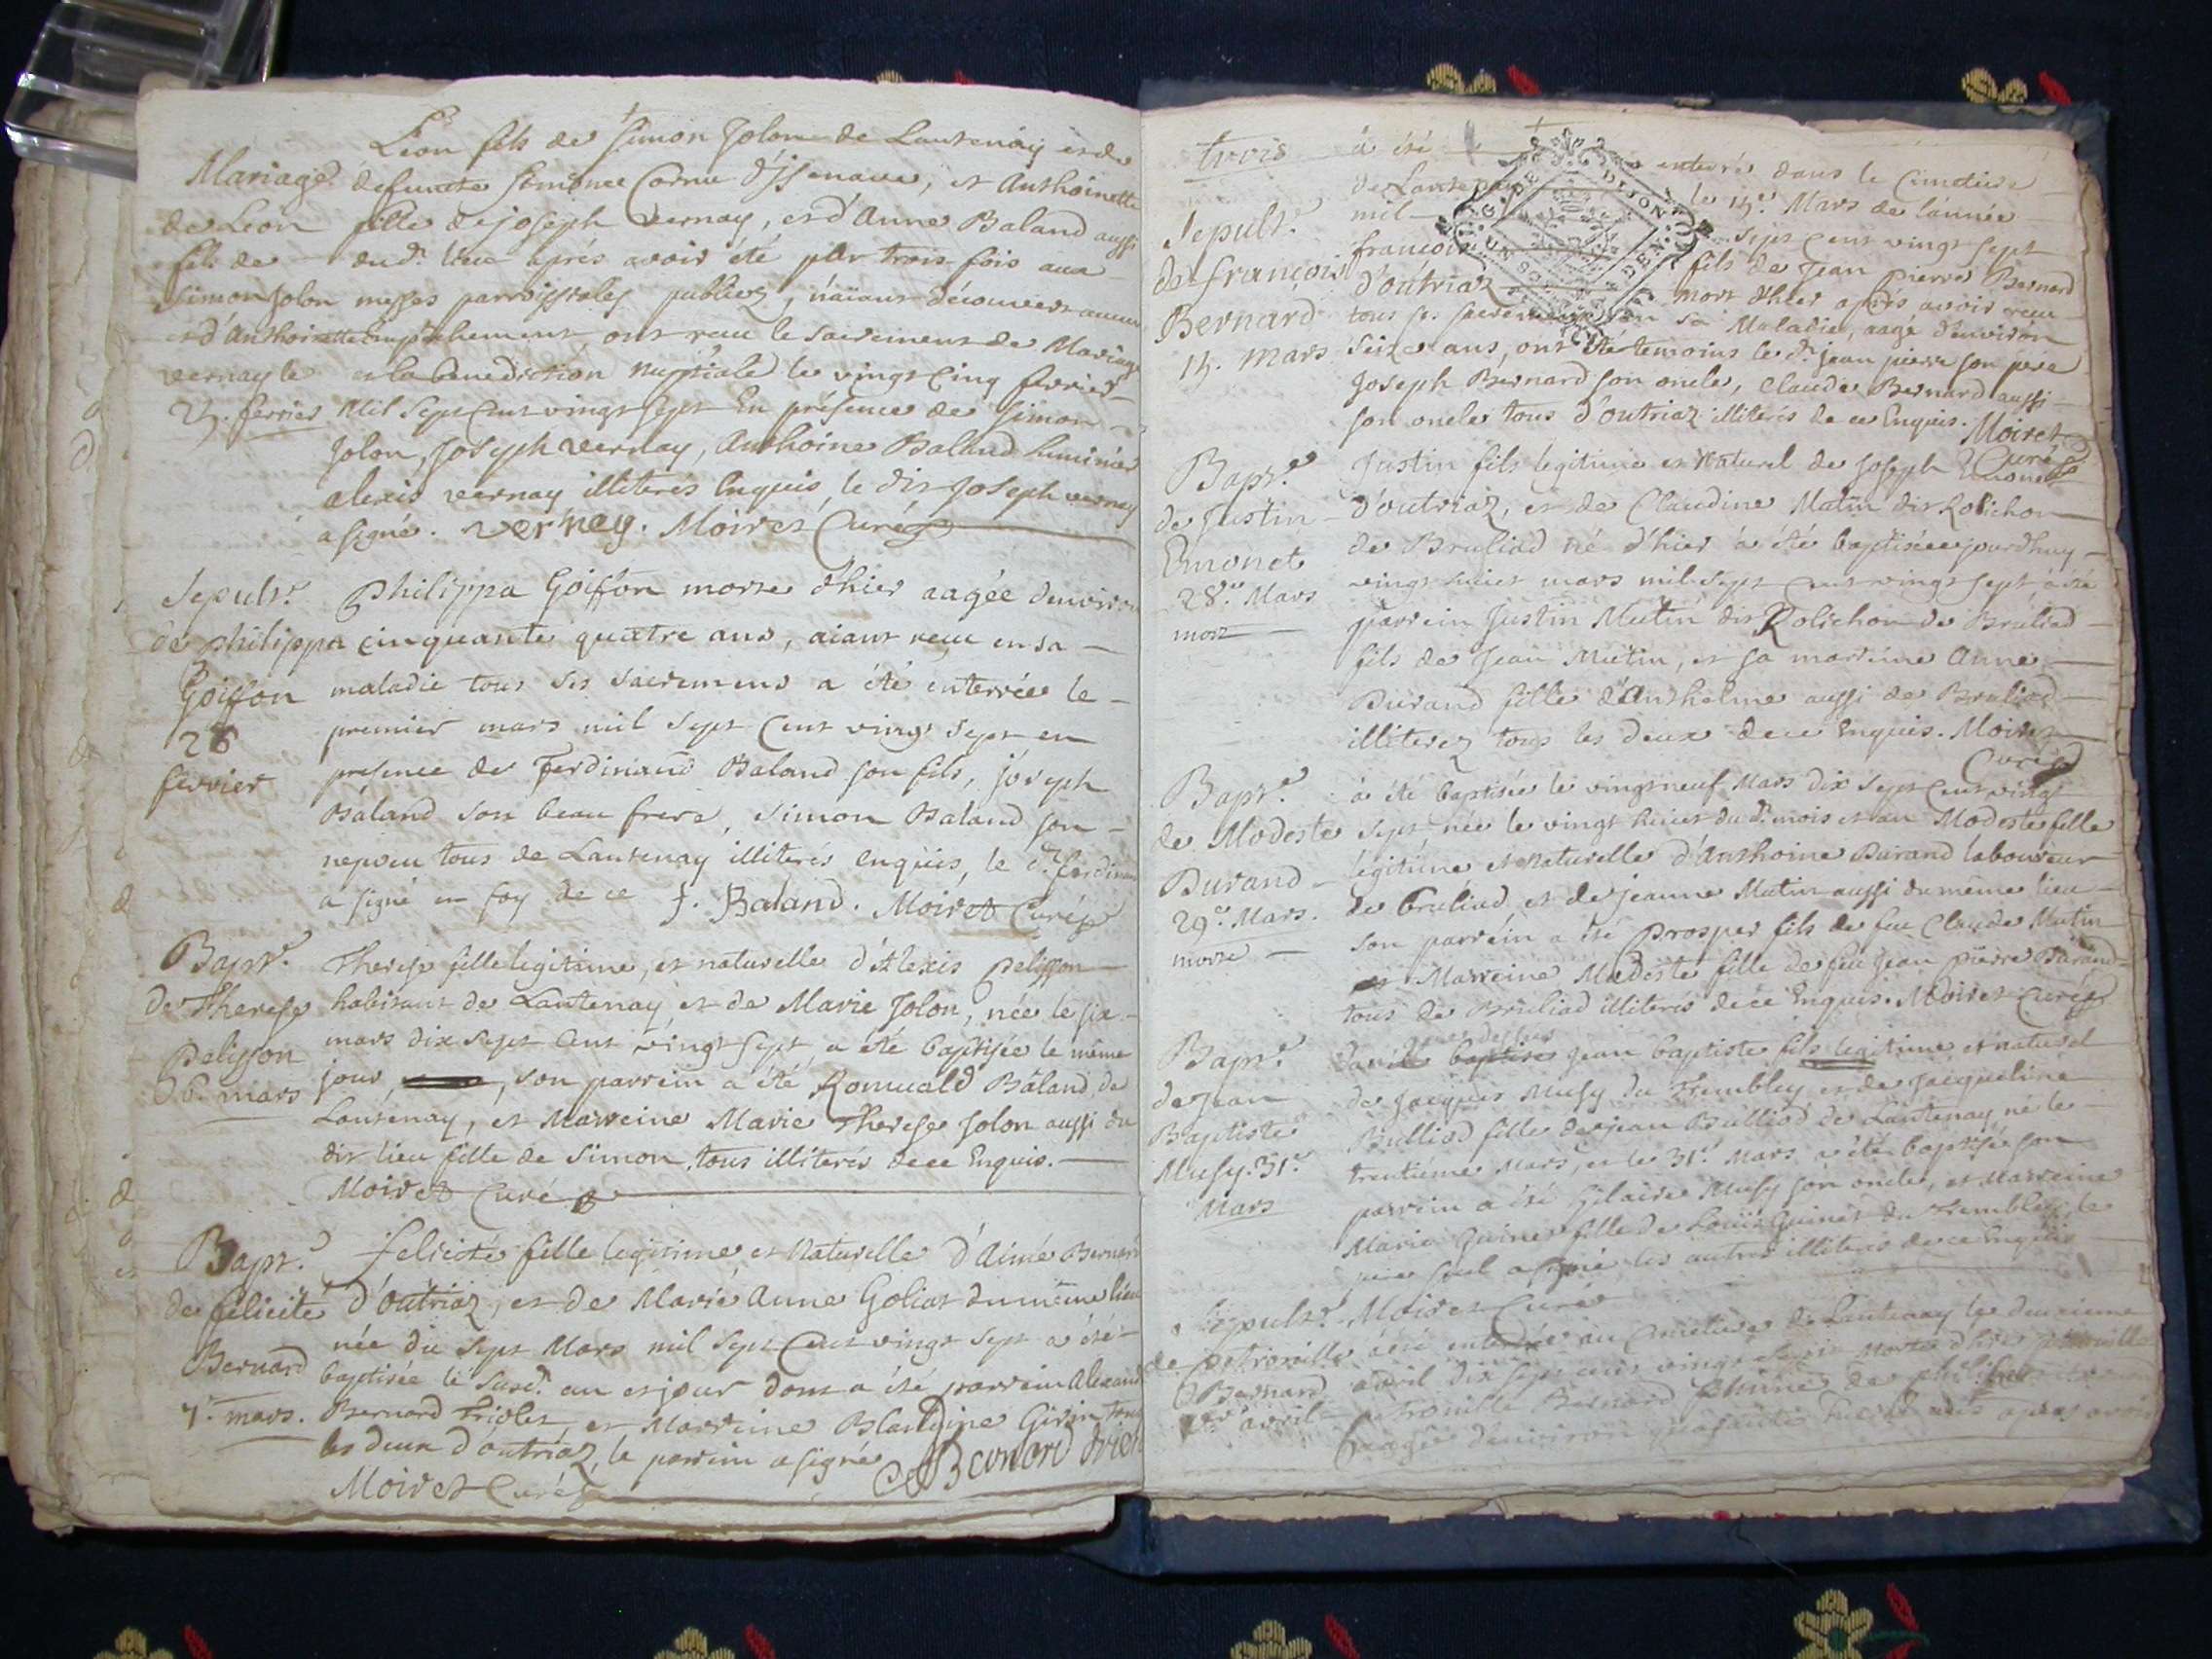 Leon fils de Simon Jolon de Lantenay et de
Mariage defuncte Simonne Cornu d'Issenave, et Anthoinette
de Leon fille de joseph Vernay, et d'Anne Baland aussi
fils de du d.t lieu aprés avoir été par trois fois aux
Simon Jolon messes parroissiales publiez, n'aiant découvert aucun
et d'Anthoinette Empechement, ont reçu le Sacrement de Mariage
vernay le et la benediction nuptiale le vingt Cinq fevrier
25. fevrier Mil Sept Cent vingt Sept En présence de Simon
Jolon, Joseph vernay, Anthoine Baland
alexis vernay illiterés Enquis, le dit Joseph vernay
a signé. verney. Moiret Curé
Sepult.e Philippa Goiffon morte d'hier aagée d'environ
de philippa cinquante quatre ans, aiant reçu en sa
Goiffon maladie tous ses sacremens a été enterrée le
28 premier mars mil Sept Cent vingt Sept en
fevrier presence de Ferdinand Baland son fils, joseph
Baland son beau frere, Simon Baland son
nepveu tous de Lantenay illiterés enquis, le d.t ferdinand
a signé en foy de ce f. Baland. Moiret Curé
Bapt.e Therese fille legitime, et naturelle d'Alexis Pelisson
de Therese habitant de Lantenay et de Marie Jolon, née le six
Pelisson mars dix Sept Cent vingt Sept a été baptisée le même
6. mars jour, son parrein a été Romuald Baland, de
Lantenay, et Marreine Marie Therese Jolon aussi du
dit lieu fille de Simon, tous illiterés de ce Enquis.
Moiret Curé
Bapt.e felicité fille legitime, et Naturelle d'Aimé Bernard
de felicité d'outriaz, et de Marie Anne Goliat du même lieu
née du Sept Mars mil Sept Cent vingt Sept a été
Bernard baptisée le susd.t an et jour dont a été parrein Alexand
7.e mars. Bernard Triolet, et Marreine Blandine Girin tous
les deux d'outriaz, le parrein a signé Bernard
Moiret Curé
trois a été enterré dans le Cimetiere
de Lantenay le 15.e Mars de l'année
Sepult.e mil Sept Cent vingt Sept
de françois françois fils de Jean Pierre Bernard
Bernard d'outriaz mort d'hier aprés avoir reçu
15. mars tous en sa Maladie, aagé d'environ
seize ans, ont été temoins le d.t jean pierre son pere
Joseph Bernard son oncle, Claude Bernard aussi
son oncle tous d'outriaz illiterés de ce Enquis. Moiret
Curé
Bapt.e Justin fils legitime et Naturel de Joseph Emonet
de Justin d'outriaz, et de Claudine Matin dit Rolichon
Emonet de Bruliad né d'hier a été baptisé
28.e Mars vingt huict mars mil Sept Cent vingt Sept, a été
mort parrein Justin Mutin dit Rolichon de Bruliad
fils de Jean Mutin, et sa marreine Anne
Durand fille d'Anthelme aussi de Bruliad
illiterez tous les deux de ce Enquis. Moiret
Curé
Bapt.e a été baptisée le vingt neuf Mars dix Sept Cent vingt
de Modeste Sept née le vingt huict du d.t mois et an Modeste fille
Durand légitime et Naturelle d'Anthoine Durand laboureur
29.e Mars. de bruliad et de jeanne Mutin aussi du même lieu
morte son parrein a été Prosper fils de feu Claude Mutin
et Marreine Modeste fille de feu Jean pierre Durand
tous de Bruliad illiterés de ce Enquis. Moiret Curé
Bapt.e jean baptiste fils legitime et naturel
de Jean de Jacques Musy du Trembley et de Jacqueline
Baptiste Bulliod fille de jean Bulliod de Lantenay né le
Musy. 31.e trentiéme Mars, et le 31.e Mars a été baptisé son
Mars parrein a été hilaire Musy son oncle, et Marreine
Marie Guinet fille de Louis Guinet du Trembley le
pere seul a signé les autres illiterés de ce Enquis
Sepult.e Moiret Curé
de petronille a été enterrée au Cimetiere de Lantenay le deuxieme
Bernard avril dix Sept cent vingt Sept morte d'hier
avril petronille Bernard femme de philibert
aagée d'environ quarante huict ans apres avoir